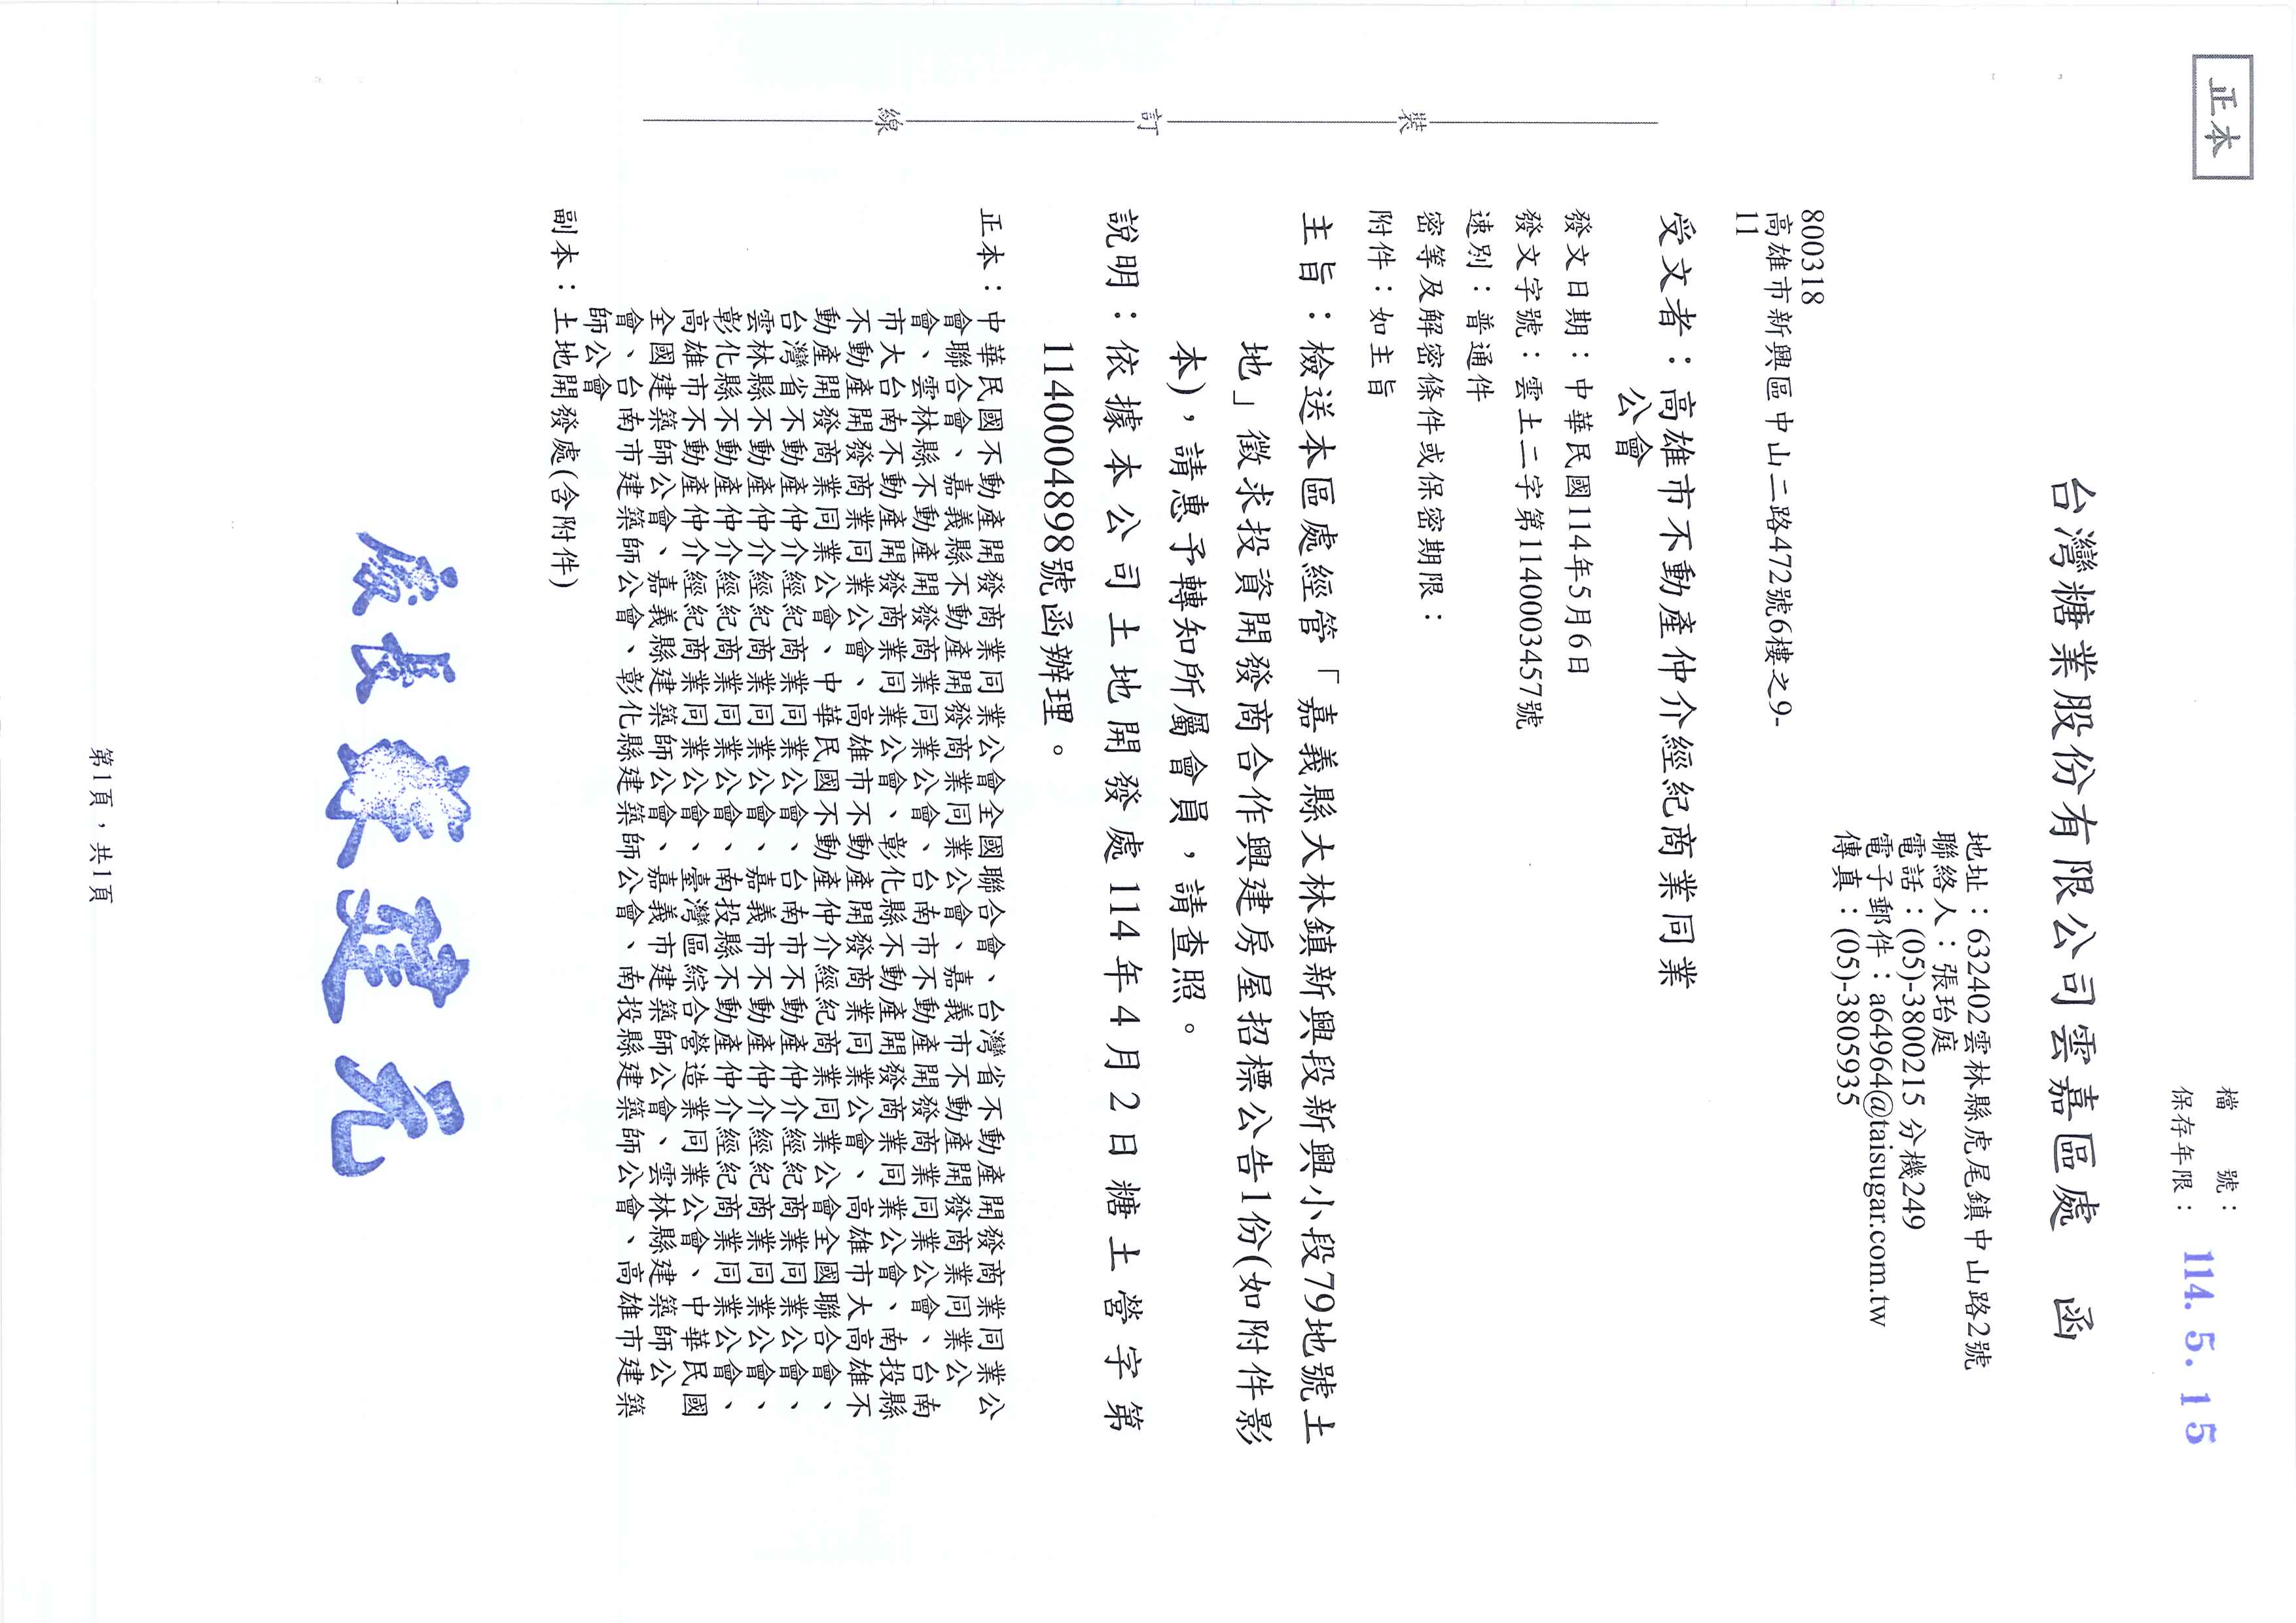 正本
檔　　號：
保存年限：
114. 5. 15
台灣糖業股份有限公司雲嘉區處　函
地址：632402雲林縣虎尾鎮中山路2號
聯絡人：張珆庭
電話：(05)-3800215 分機249
電子郵件：a64964@taisugar.com.tw
傳真：(05)-3805935
800318
高雄市新興區中山二路472號6樓之9-
11
受文者：高雄市不動產仲介經紀商業同業
公會
發文日期：中華民國114年5月6日
發文字號：雲土二字第1140003457號
速別：普通件
密等及解密條件或保密期限：
附件：如主旨
主旨：檢送本區處經管「嘉義縣大林鎮新興段新興小段79地號土
地」徵求投資開發商合作興建房屋招標公告1份(如附件影
本)，請惠予轉知所屬會員，請查照。
說明：依據本公司土地開發處114年4月2日糖土營字第
1140004898號函辦理。
正本：中華民國不動產開發商業同業公會全國聯合會、台灣省不動產開發商業同業公
會聯合會、嘉義縣不動產開發商業同業公會、嘉義市不動產開發商業同業公
會、雲林縣不動產開發商業同業公會、台南市不動產開發商業同業公會、台南
市大台南不動產開發商業同業公會、彰化縣不動產開發商業同業公會、南投縣
不動產開發商業同業公會、高雄市不動產開發商業同業公會、高雄市大高雄不
動產開發商業同業公會、中華民國不動產仲介經紀商業同業公會全國聯合會、
台灣省不動產仲介經紀商業同業公會、台南市不動產仲介經紀商業同業公會、
雲林縣不動產仲介經紀商業同業公會、嘉義市不動產仲介經紀商業同業公會、
彰化縣不動產仲介經紀商業同業公會、南投縣不動產仲介經紀商業同業公會、
高雄市不動產仲介經紀商業同業公會、臺灣區綜合營造業同業公會、中華民國
全國建築師公會、嘉義縣建築師公會、嘉義市建築師公會、雲林縣建築師公
會、台南市建築師公會、彰化縣建築師公會、南投縣建築師公會、高雄市建築
師公會
副本：土地開發處(含附件)
裝
訂
線
處長 蔡建元
第1頁，共1頁